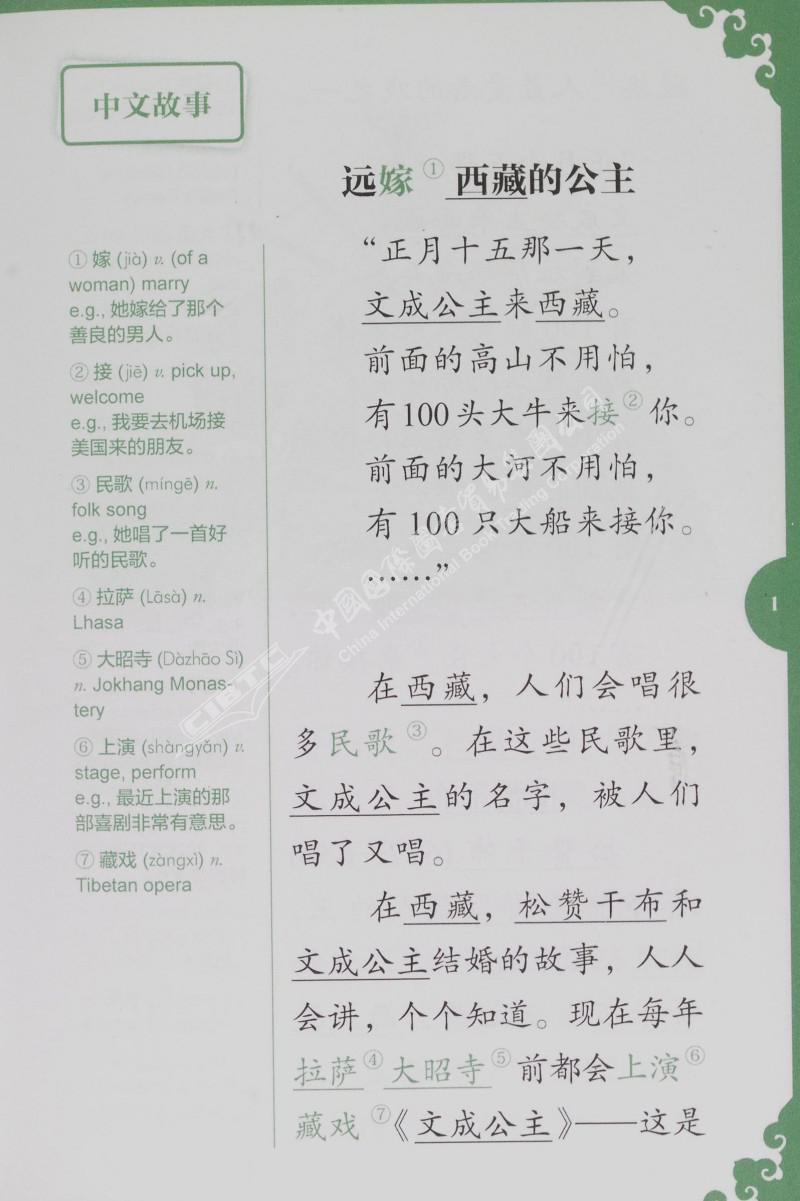 中文故事
远嫁① 西藏的公主
① 嫁 (jià) v. (of a
woman) marry
e.g., 她嫁给了那个
善良的男人。
② 接 (jiē) v. pick up,
welcome
e.g., 我要去机场接
美国来的朋友。
③ 民歌 (míngē) n.
folk song
e.g., 她唱了一首好
听的民歌。
④ 拉萨 (Lāsà) n.
Lhasa
⑤ 大昭寺 (Dàzhāo Sì)
n. Jokhang Monas-
tery
⑥ 上演 (shàngyǎn) v.
stage, perform
e.g., 最近上演的那
部喜剧非常有意思。
⑦ 藏戏 (zàngxì) n.
Tibetan opera
“正月十五那一天，
文成公主来西藏。
前面的高山不用怕，
有100头大牛来接②你。
前面的大河不用怕，
有 100 只大船来接你。
……”
在西藏，人们会唱很
多民歌③。在这些民歌里，
文成公主的名字，被人们
唱了又唱。
在西藏，松赞干布和
文成公主结婚的故事，人人
会讲，个个知道。现在每年
拉萨④大昭寺⑤前都会上演⑥
藏戏⑦《文成公主》——这是
1
中国国际图书贸易集团公司
China International Book Trading Corporation
CIBTC